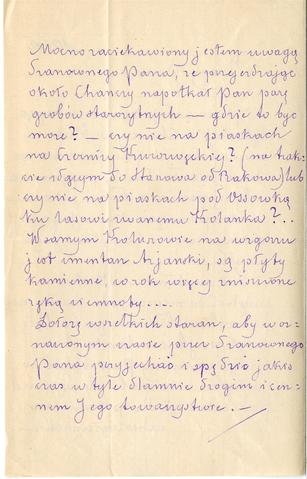 Mocno zaciekawiony jestem uwagą
Szanownego Pana, że przejeżdżając
około Chańczy napotkał Pan parę
grobów starożytnych — gdzie to być
może? — czy nie na piaskach
na Czernizy (na trak-
cie idącym do Staszowa od Rakowa) lub
czy nie na piaskach pod Ossówką
ku lasowi zwanemu Wolanka?..
W samym na wzgórzu
jest cmentarz Arjański, są płyty
kamienne, co rok więcej zniszczone
ręką ciemnoty....
Dołożę wszelkich starań, aby w oz-
naczonym czasie przez Szanownego
Pana przyjechać i spędzić jakiś
czas w tyle dla mnie drogim i cen-
nem Jego towarzystwie. —